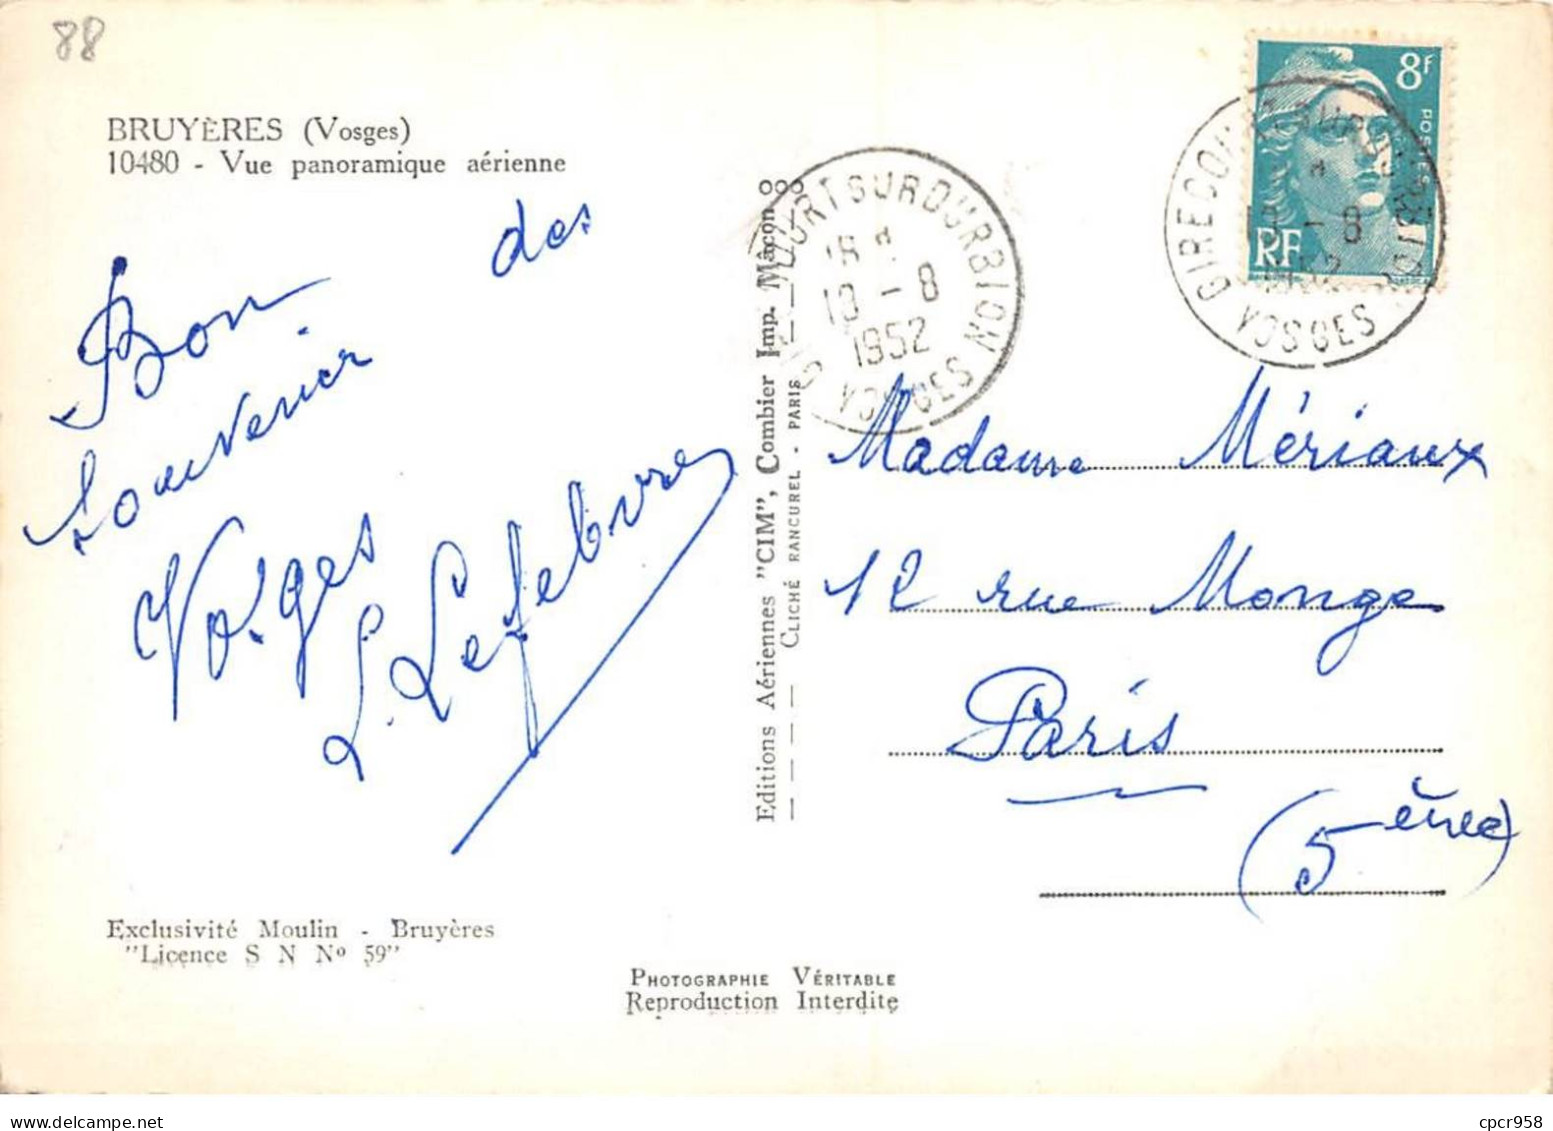 88
BRUYÈRES (Vosges)
10480 - Vue panoramique aérienne
Bon des
souvenir
Vosges
L. Lefebvre
Exclusivité Moulin - Bruyères
"Licence S N Nº 59"
Editions Aériennes "CIM", Combier Imp. Mâcon
CLICHÉ RANCUREL - PARIS
PHOTOGRAPHIE VÉRITABLE
Reproduction Interdite
GIRECOURT SUR DURBION
18
19 - 8
1952
VOSGES
8F
POSTES
RF
GIRECOURT SUR DURBION
- 8
1952
VOSGES
Madame Mériaux
12 rue Monge
Paris
(5ème)
cpcr958